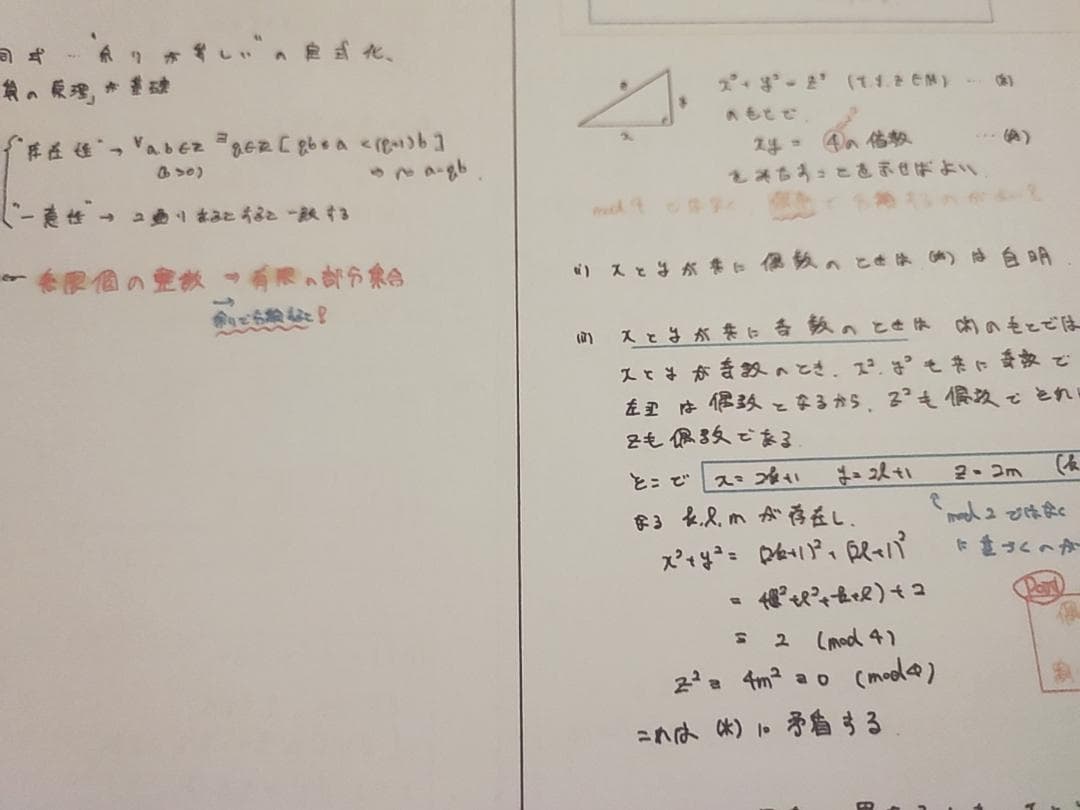 "余りが等しい"の定式化、
の原理」が基礎
"存在性" → ∀a,b∈Z ∃q∈Z [qb≦a<(q+1)b]
(b>0)
a-qb
"一意性" → 2通りあるとすると一致する
無限個の整数 → 有限の部分集合
→
余りで分類すると!
x
x²+y²=z² (x,y,z∈N) … (*)
のもとで
xy = ④の倍数 …
をみたすことを示せばよい
mod 4 ではなく、
(i) xとyが共に偶数のときは は自明
xとyが共に奇数のときは のもとでは
xとyが奇数のとき、x²,y²も共に奇数で
左辺は偶数となるから、z²も偶数で
zも偶数である
そこで x=2k+1 y=2l+1 z=2m (k
なる k,l,mが存在し、
mod 2 ではなく
に基づくのが
x²+y² = (2k+1)²+(2l+1)²
= 4(k²+l²+k+l)+2
≡ 2 (mod 4)
z² = 4m² ≡ 0 (mod 4)
これは (*) に矛盾する
Point